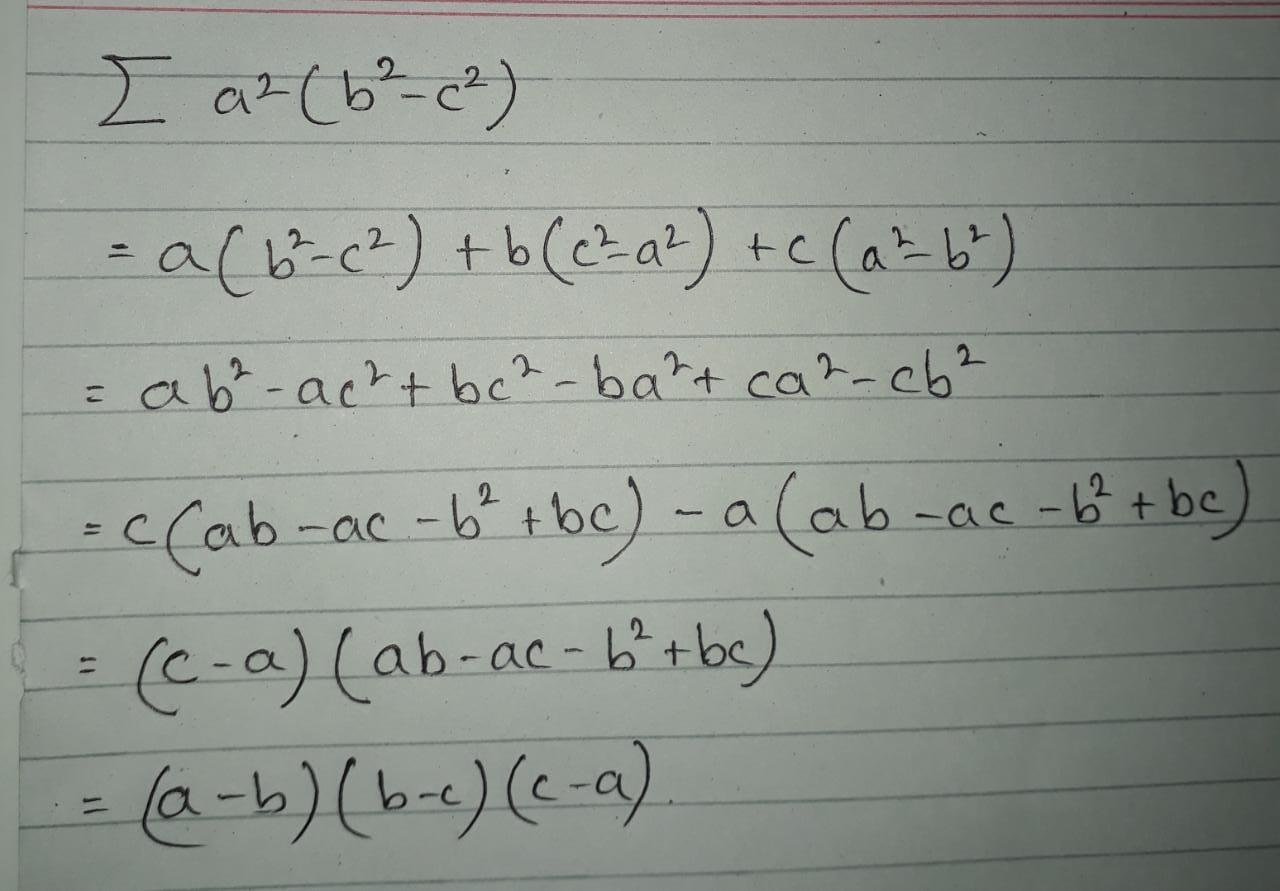 ∑ a²(b²-c²)
= a(b²-c²) + b(c²-a²) + c(a²-b²)
= ab²-ac²+bc²-ba²+ca²-cb²
= c(ab-ac-b²+bc)-a(ab-ac-b²+bc)
= (c-a)(ab-ac-b²+bc)
= (a-b)(b-c)(c-a).